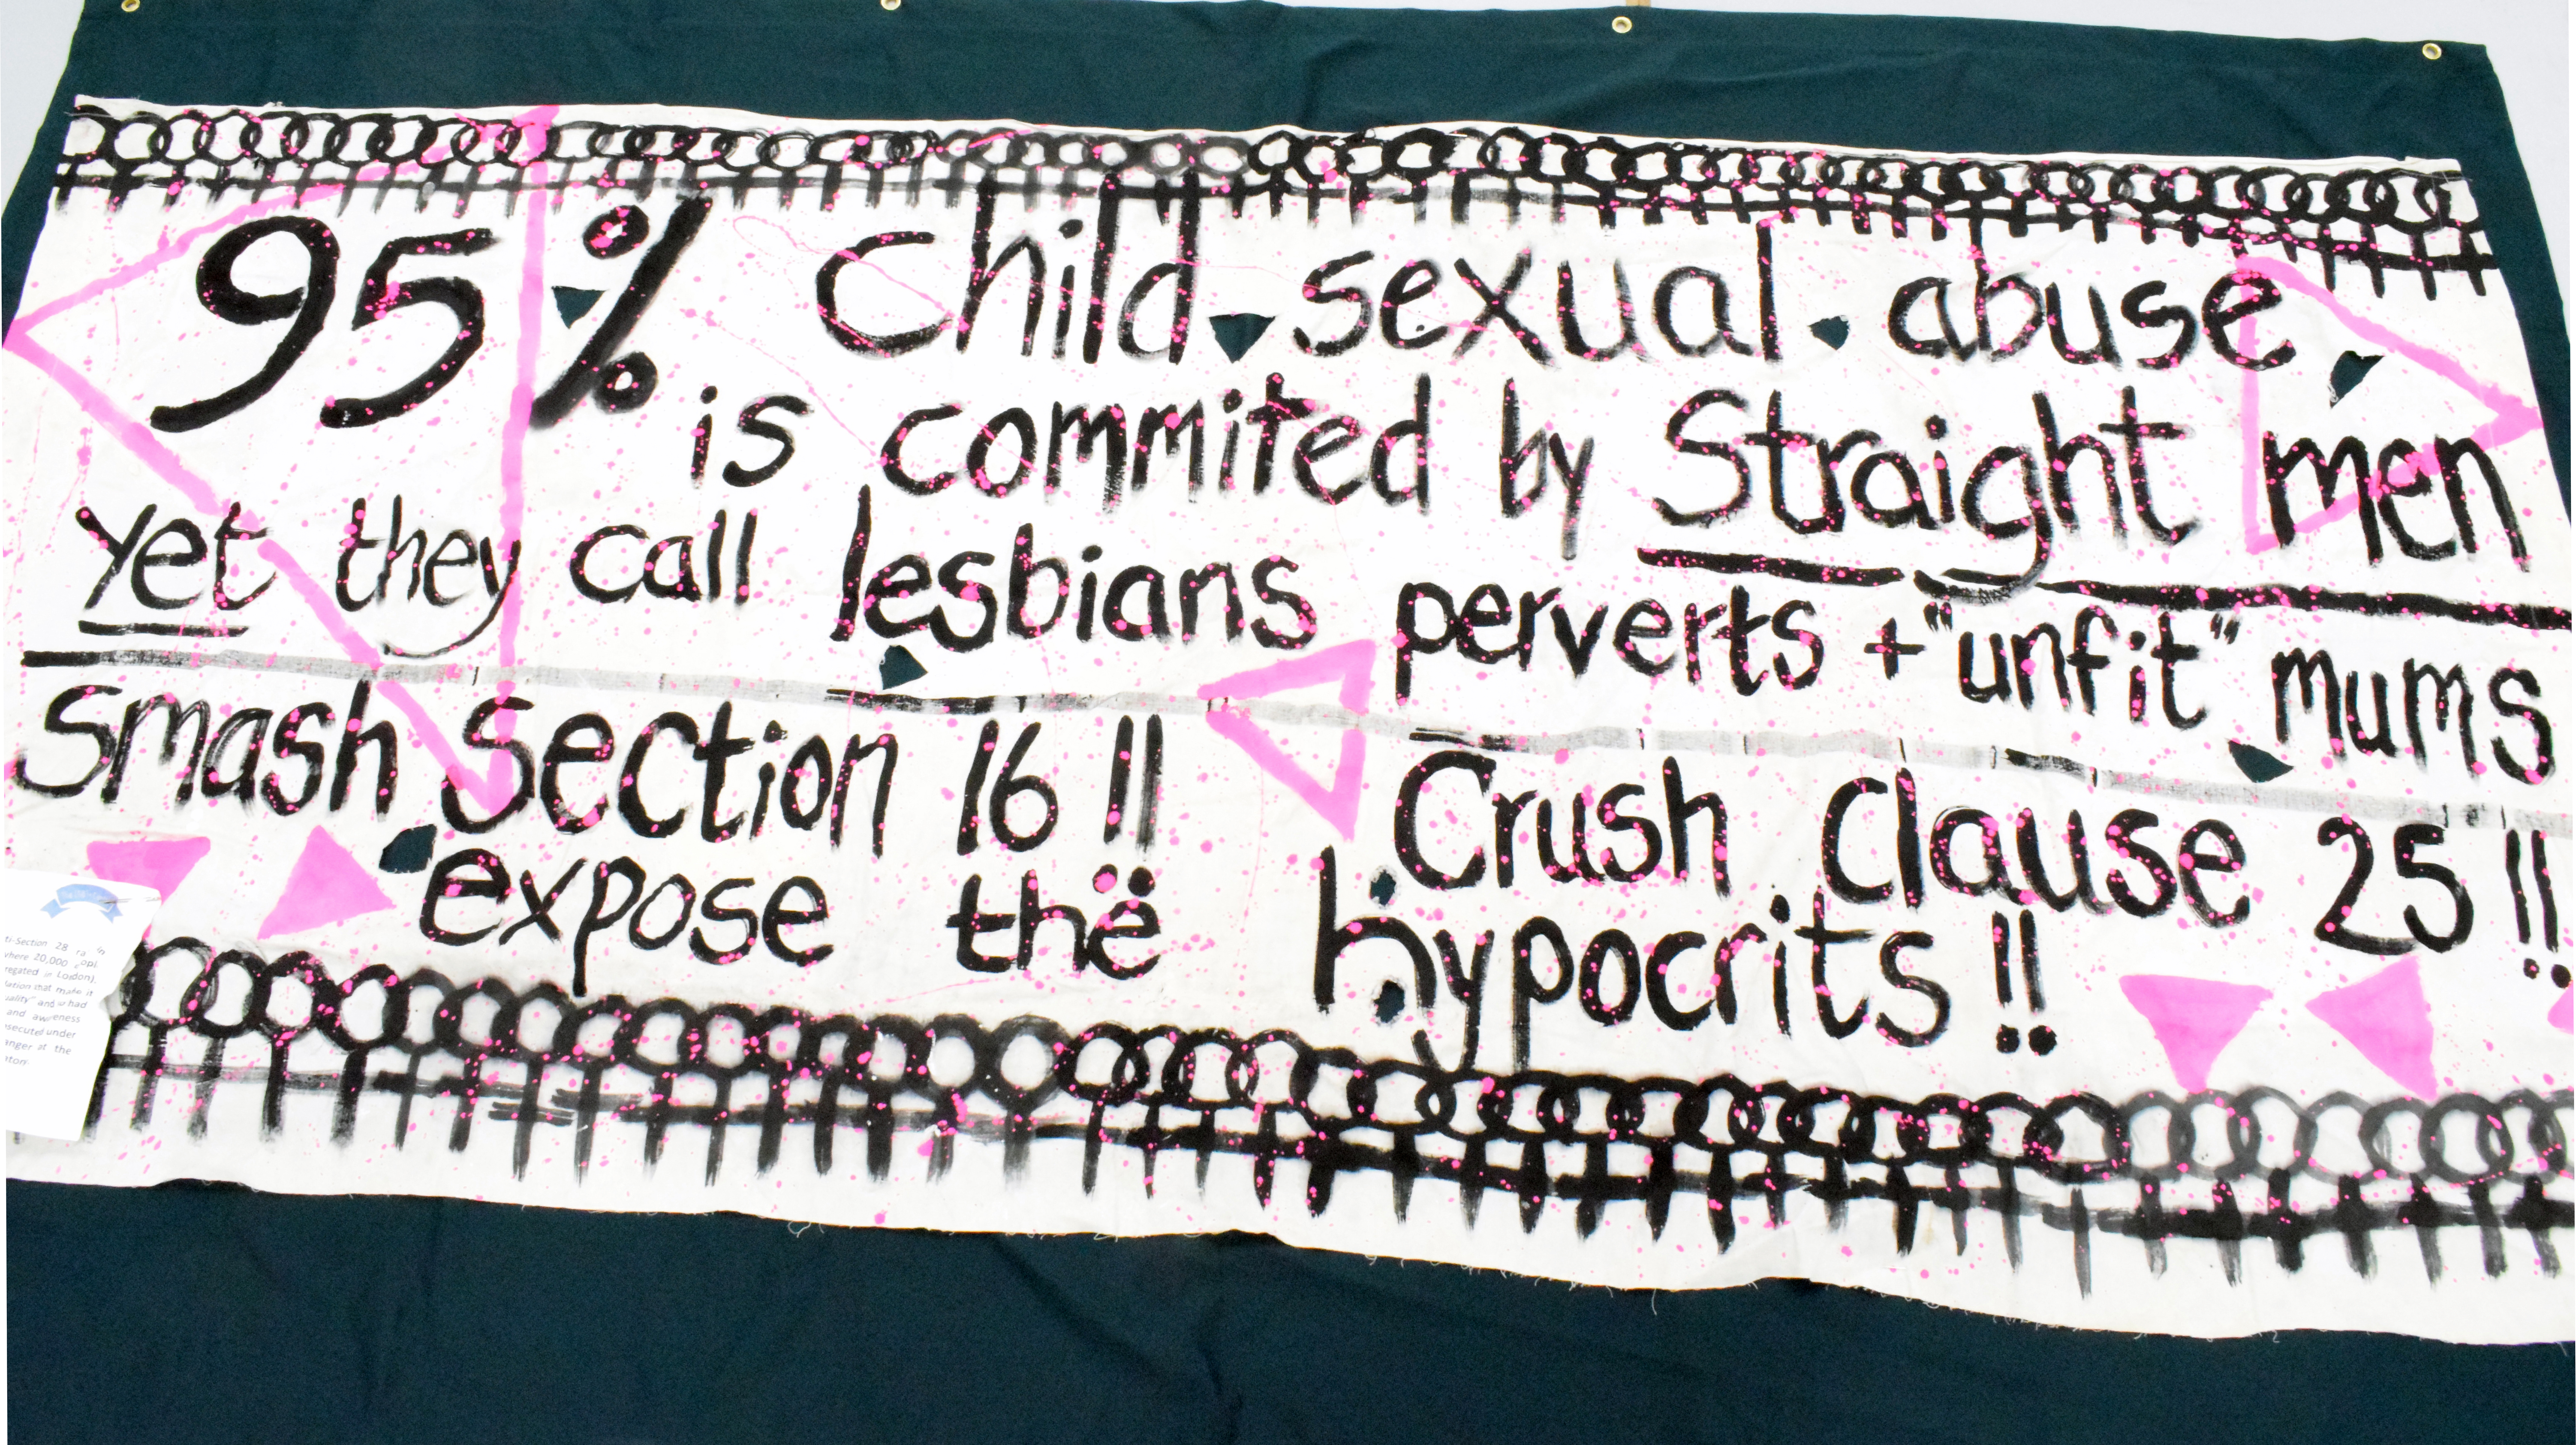 95% child sexual abuse
is commited by Straight men
yet they call lesbians perverts + "unfit" mums
Smash Section 16!! Crush Clause 25!!
expose the hypocrits!!
ti-Section 28
where 20,000
regated in London),
lation that made it
uality" and had
and awareness
secuted under
anger at the